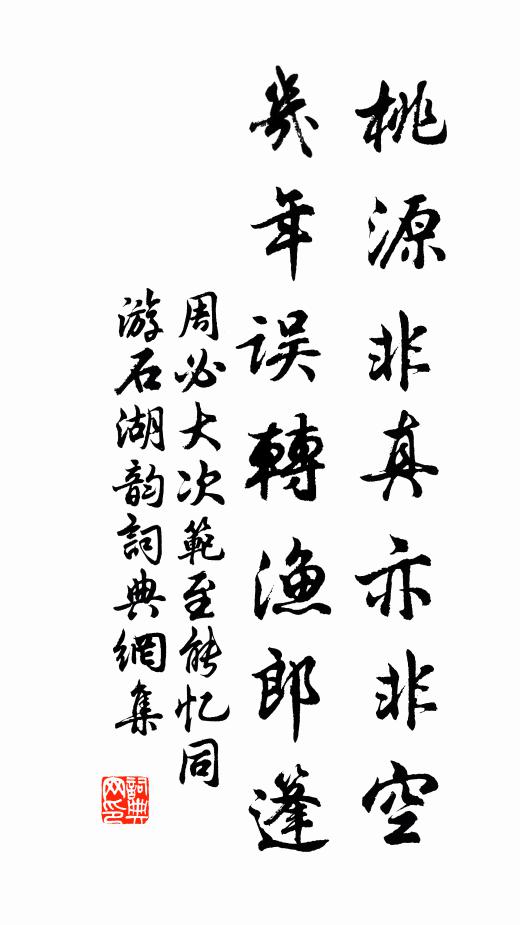 桃源非真亦非空
幾年误轉漁郎蓬
周必大次範至能忆同
游石湖韵詞典網集
詞典网印